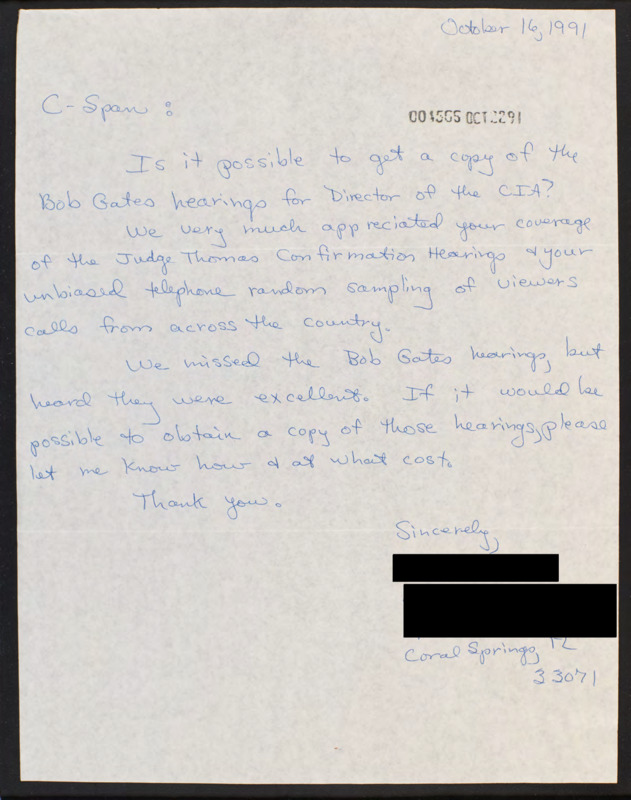 October 16, 1991
C-Span:
004565 OCT 2291
Is it possible to get a copy of the
Bob Gates hearings for Director of the C.I.A?
We very much appreciated your coverage
of the Judge Thomas Confirmation Hearings & your
unbiased telephone random sampling of viewers
calls from across the country.
We missed the Bob Gates hearings, but
heard they were excellent. If it would be
possible to obtain a copy of those hearings, please
let me know how & at what cost.
Thank you.
Sincerely,
Coral Springs, FL
33071